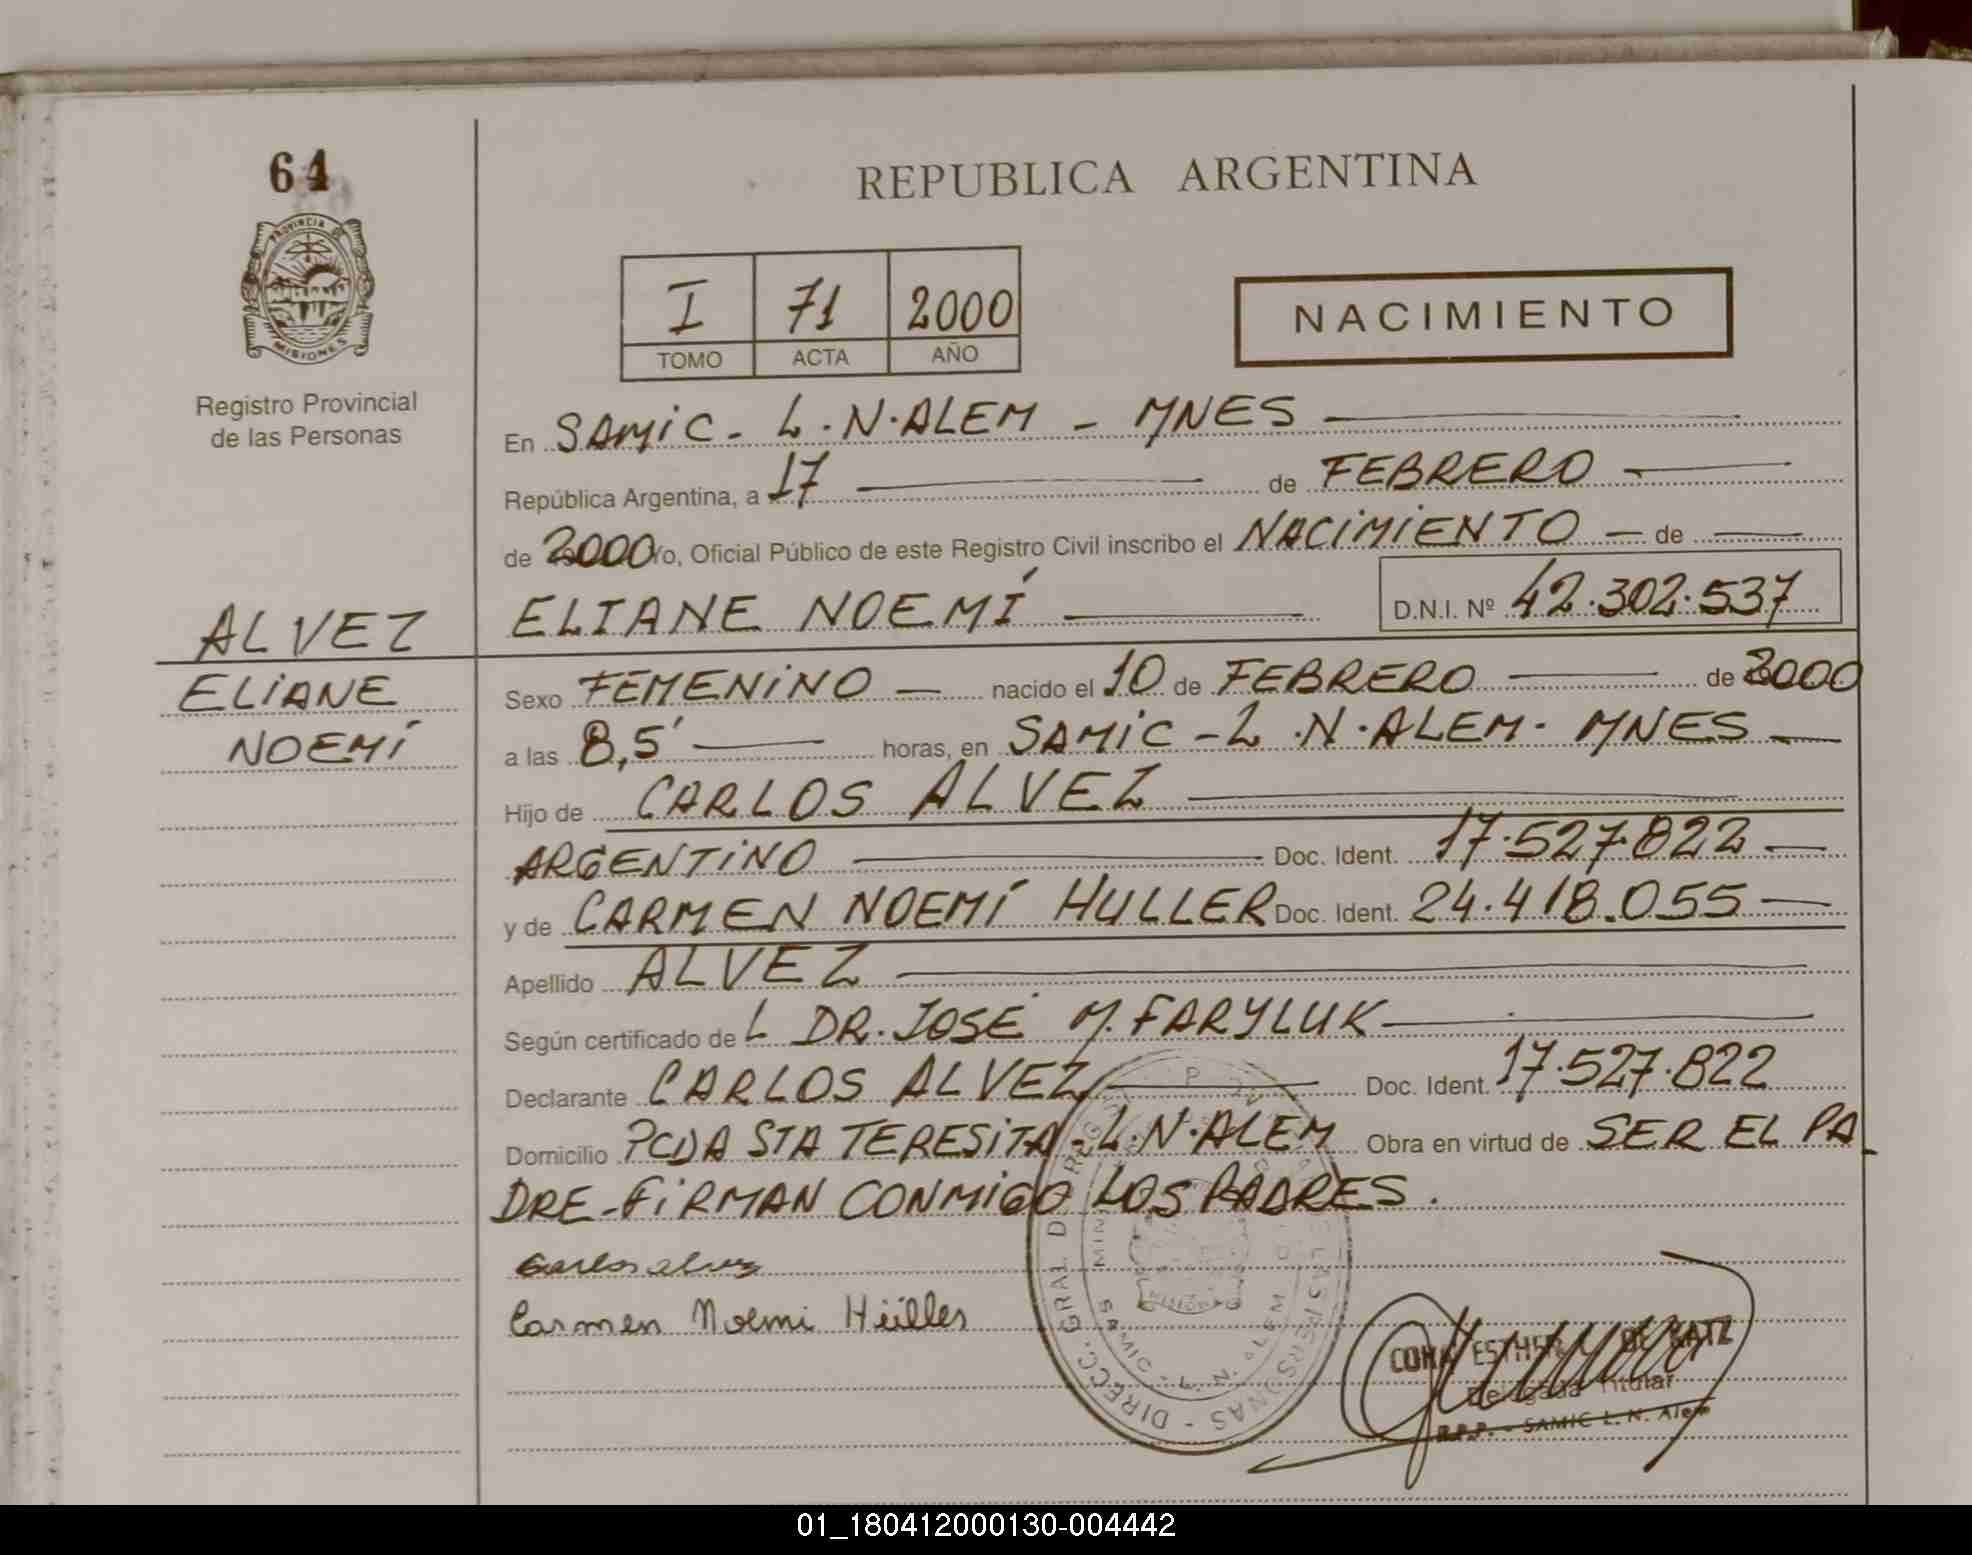 64
PROVINCIA DE
MISIONES
Registro Provincial
de las Personas
REPUBLICA ARGENTINA
I 71 2000
TOMO ACTA AÑO
NACIMIENTO
En SAMIC - L.N.ALEM - MNES
República Argentina, a 17 de FEBRERO
de 2000 Yo, Oficial Público de este Registro Civil inscribo el NACIMIENTO de
ALVEZ
ELIANE
NOEMÍ
ELIANE NOEMÍ D.N.I. Nº 42.302.537
Sexo FEMENINO nacido el 10 de FEBRERO de 2000
a las 8,5' horas, en SAMIC - L.N.ALEM - MNES
Hijo de CARLOS ALVEZ
ARGENTINO Doc. Ident. 17.527.822
y de CARMEN NOEMÍ HULLER Doc. Ident. 24.418.055
Apellido ALVEZ
Según certificado de L DR. JOSÉ M. FARYLUK
Declarante CARLOS ALVEZ Doc. Ident. 17.527.822
Domicilio PCDA STA TERESITA - L.N.ALEM Obra en virtud de SER EL PA
DRE - FIRMAN CONMIGO LOS PADRES.
Carlos alvez
Carmen Noemi Hüller
DIRECC. GRAL DE
LAS PERSONAS
SAMIC - L. N. ALEM
ESTHER DE KATZ
Delegada Titular
R.P.P. - SAMIC L. N. Alem
01_180412000130-004442